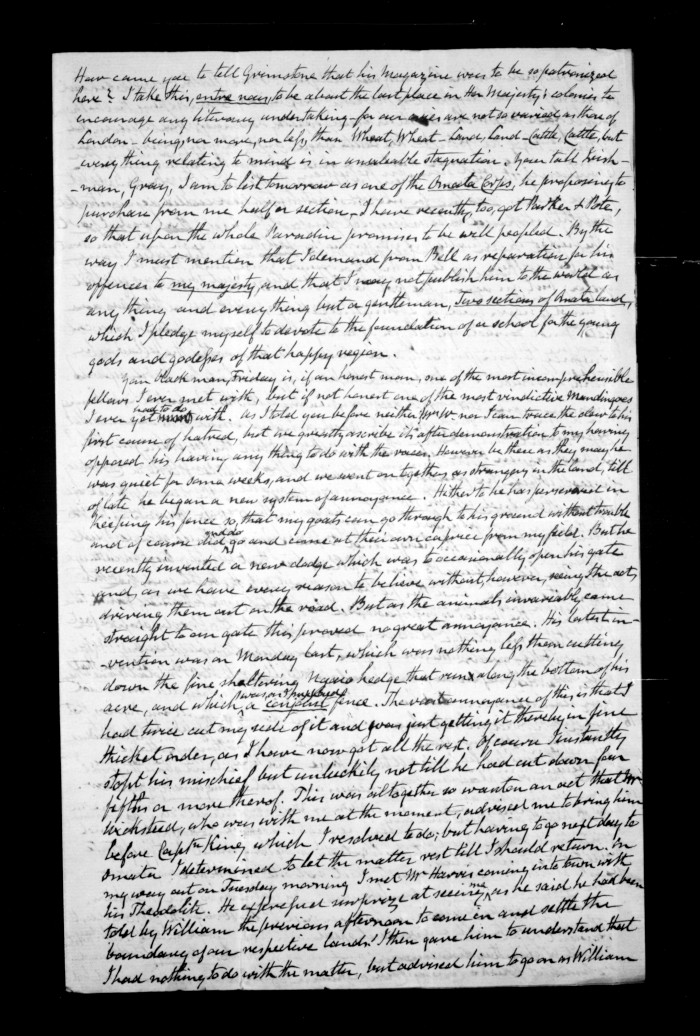 How came you to tell Grimstone that his Magazine was to be so patronized
here? I take this, entre nous, to be about the last place in Her Majesty's colonies to
encourage any literary undertaking – for our are not so varied as those of
London – being, nor more, nor less, than Wheat, Wheat – Land, Land – Cattle, Cattle, but
everything relating to mind is in unsaleable stagnation. Your tall Irish-
-man, Gray, I am to list tomorrow as one of the Omata Corps, he proposing to
purchase from me half a section – I have recently, too, got Parker & Pote,
so that upon the whole Paradise promises to be well peopled. By the
way I must mention that I demand from Bell as reparation for his
offences to my majesty, and that I may not publish him to the world as
any thing and every thing but a gentleman, Two sections of Omata land,
which I pledge myself to devote to the foundation of a school for the young
gods and godesses of that happy region.
Your black man, Friday is, if an honest man, one of the most incomprehensible
fellows I ever met with, but if not honest one of the most vindictive Mandingoes
I ever yet had to do with. As I told you before neither Mrs W. nor I can trace the clew to his
first cause of hatred, but we greatly ascribe its after demonstration to my having
opposed his having any thing to do with the races. However be these as they may he
was quiet for some weeks, and we went on together, as strangers in the land, till
of late he began a new system of annoyance. Hitherto he has persevered in
keeping his fence so, that my goats can go through to his ground without trouble
and of course did and do go and come at their own caprice from my field. But he
recently invented a new dodge which was to occasionally open his gate
and, as we have every reason to believe, without, however, seeing the acts
driving them out on the road. But as the animals invariably came
straight to our gate this proved no great annoyance. His latest in-
-vention was on Monday last, which was nothing less than cutting
down the fine sheltering Ngaio hedge that runs along the bottom of his
acre, and which was a fence. The annoyance of this is that I
had twice cut my side of it and was just getting it thereby in fine
thicket order, as I have now got all the rest. Of course I instantly
stopt his mischief but unluckily not till he had cut down four
fifths or more thereof. This was altogether so wanton an act that Mr
Wicksteed, who was with me at the moment, advised me to bring him
before Captn King, which I resolved to do; but having to go next day to
Omata I determined to let the matter rest till I should return. On
my way out on Tuesday morning I met Mr Harris coming into town with
his Theodolite. He expressed surprize at seeing me, as he said he had been
told by William the previous afternoon to come in and settle the
boundary of our respective lands! I then gave him to understand that
I had nothing to do with the matter, but advised him to go on as William